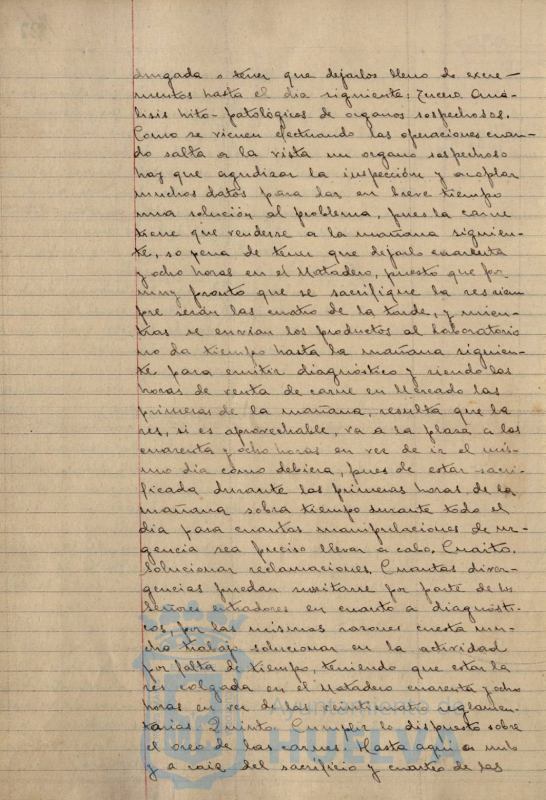 drugada o tener que dejarlos lleno de excre-
mentos hasta el dia siguiente; Tercero Aná-
lisis hito-patológicos de organos sospechosos.
Como se vienen efectuando las operaciones cuan-
do salta a la vista un organo sospechoso
hay que agudizar la inspección y acoplar
muchos datos para dar en breve tiempo
una solución al problema, pues la carne
tiene que venderse a la mañana siguien-
te, so pena de tener que dejarlo cuarenta
y ocho horas en el Matadero, puesto que por
muy pronto que se sacrifique la res siem
pre serán las cuatro de la tarde, y mien-
tras se envian los productos al laboratorio
no da tiempo hasta la mañana siguien-
te para emitir diagnóstico y siendo las
horas de venta de carne en Mercado las
primeras de la mañana, resulta que la
res, si es aprovechable, va a la plaza a las
cuarenta y ocho horas en vez de ir el mis-
mo dia como debiera, pues de estar sacri-
ficada durante las primeras horas de la
mañana sobra tiempo durante todo el
dia para cuantas manipulaciones de ur-
gencia sea preciso llevar a cabo. Cuarto.
Solucionar reclamaciones. Cuantas diver-
gencias puedan suscitarse por parte de los
Señores entradores en cuanto a diagnósti-
cos, por las mismas razones cuesta mu-
cho trabajo solucionar en la actividad
por falta de tiempo, teniendo que estar la
res colgada en el Matadero cuarenta y ocho
horas en vez de las veinticuatro reglamen-
tarias. Quinto. Cumplir lo dispuesto sobre
el oreo de las carnes. Hasta aqui es nulo
y a raiz del sacrificio y cuarteo de las
Ayuntamiento de
HUELVA